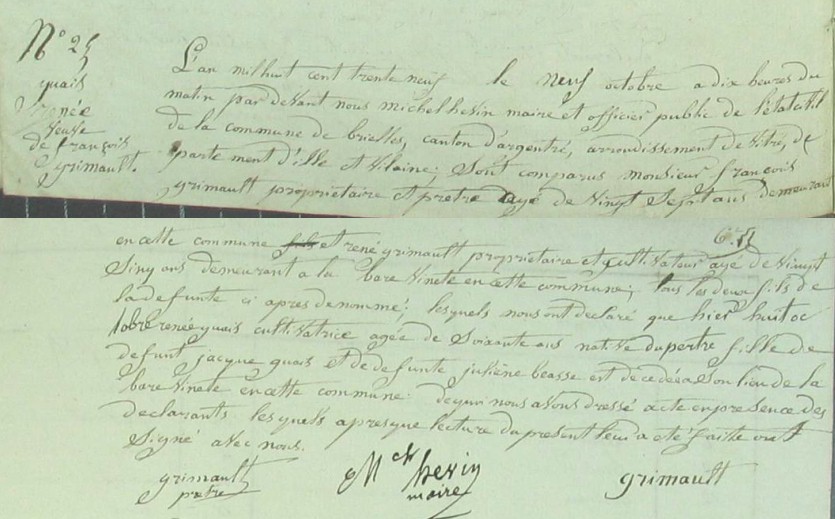 N° 25
quais
renée
veuve
de françois
grimault.
L'an mil huit cent trente neuf le neuf octobre a dix heures du
matin par devant nous michel hevin maire et officier public de l'état civil
de la commune de brielles, canton d'argentré, arrondissement de vitré, dé
partement d'ille et vilaine; sont comparus monsieur françois
grimault propriétaire et pretre agé de vingt sept ans demeurant
en cette commune et rené grimault propriétaire et cultivateur agé de vingt
sinq ans demeurant a la bare vinete en cette commune; tous les deux fils de
la defunte ci apres denommé; lesquels nous ont declaré que hier huit oc
tobre renée quais cultivatrice agée de soixante ans native du pertre fille de
defunt jacque quais et de defunte juliène béasse est décedée a son lieu de la
bare vinete en cette commune: de quoi nous avons dressé acte en presence des
declarants lesquels apres que lecture du present leur a eté faite ont
signé avec nous.
grimault
pretre
M ch hevin
maire
grimault